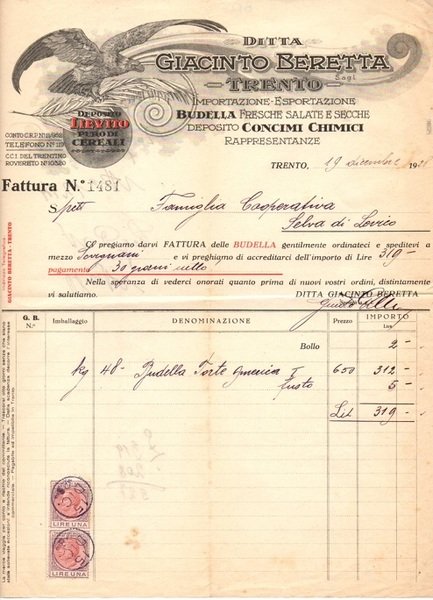 DITTA
GIACINTO BERETTA
S.a.g.l.
TRENTO
IMPORTAZIONE-ESPORTAZIONE
BUDELLA FRESCHE SALATE E SECCHE
DEPOSITO CONCIMI CHIMICI
RAPPRESENTANZE
DEPOSITO
LIEVITO
PURO DI
CEREALI
CONTO C.R.P. N°
TELEFONO N° 119
C.C.I. DEL TRENTINO
ROVERETO N° 10320
TRENTO, 19 dicembre 19
Fattura N.° 1481
Spett Famiglia Cooperativa
Selva di Levico
Ci pregiamo darvi FATTURA delle BUDELLA gentilmente ordinateci e speditevi a
mezzo e vi preghiamo di accreditarci dell'importo di Lire 319-
pagamento 30 giorni netto
Nella speranza di vederci onorati quanto prima di nuovi vostri ordini, distintamente
vi salutiamo. DITTA GIACINTO BERETTA
Indirizzo Telegrafico:
GIACINTO BERETTA - TRENTO
G. B. N.° Imballaggio DENOMINAZIONE Prezzo IMPORTO
Lire
Bollo 2-
kg 48- Budella Torte I 600 312-
fusto 5-
Lit 319-
LIRE UNA
LIRE UNA